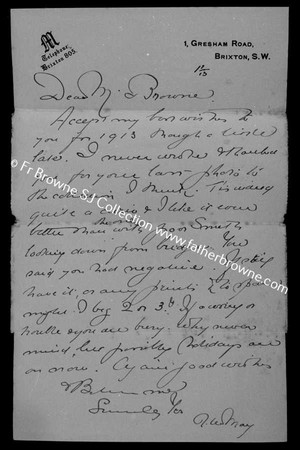 M
Telephone,
Brixton 805.
1, GRESHAM ROAD,
BRIXTON, S.W.
1/1/13
Dear Mr Browne
Accept my best wishes to
you for 1913 though a little
late. I never wrote & thanked
you for your last photo
the I think. Its
quite a & I like it even
better than with poor Smith
looking down from bridge. You
said you had negative. If still
have it or any prints & to spare
might I beg 2 or 3. If a worry or
trouble & you are busy. Why never
mind, but possibly holidays are
on now. Again good wishes
&
Sincerely Yrs
May
© Fr Browne SJ Collection www.fatherbrowne.com